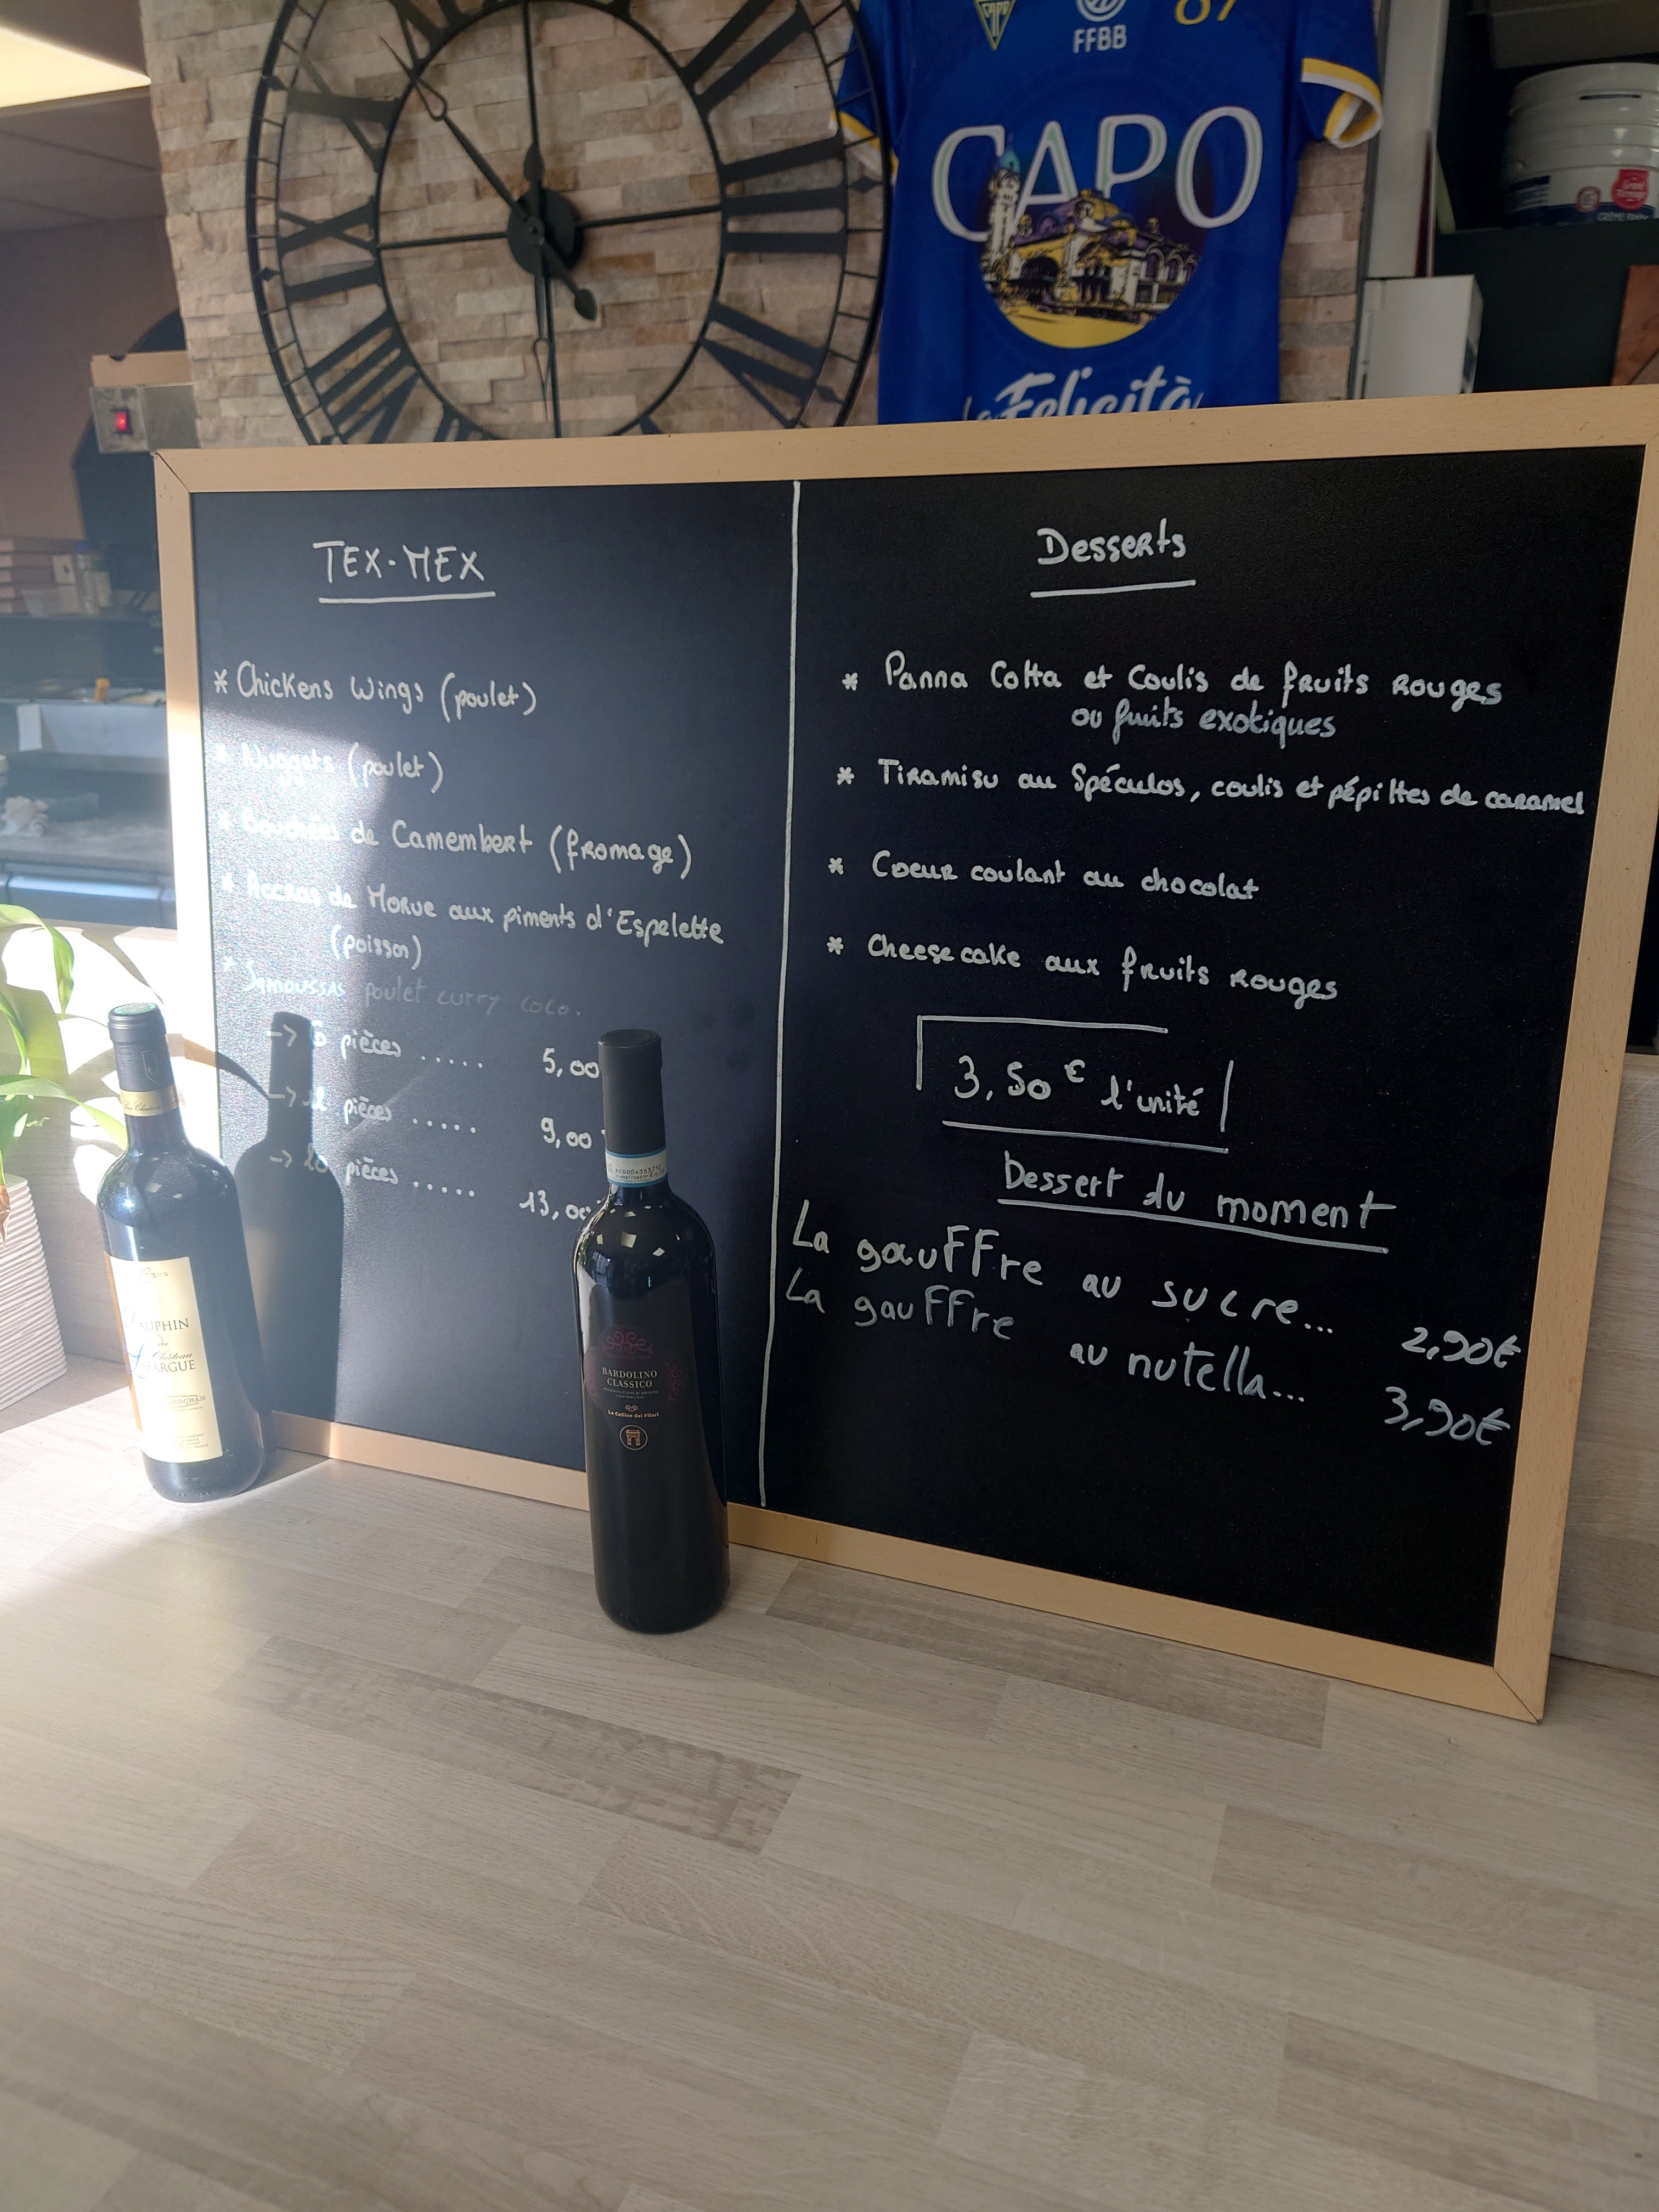 CAPO
FFBB
07
CAPO
La Felicità
TEX-MEX
* Chickens Wings (poulet)
* Nuggets (poulet)
* de Camembert (fromage)
* Accras de Morue aux piments d'Espelette
(poisson)
* Samoussas poulet curry coco.
-> 6 pièces ..... 5,00
-> 12 pièces ..... 9,00
-> 20 pièces ..... 13,00
Desserts
* Panna Cotta et Coulis de fruits rouges
ou fruits exotiques
* Tiramisu au Spéculos, coulis et pépittes de caramel
* Coeur coulant au chocolat
* Cheese cake aux fruits rouges
3,50€ l'unité
Dessert du moment
La gauffre au sucre... 2,90€
La gauffre au nutella... 3,90€
DAUPHIN
du
Château
LAFARGUE
BARDOLINO
CLASSICO